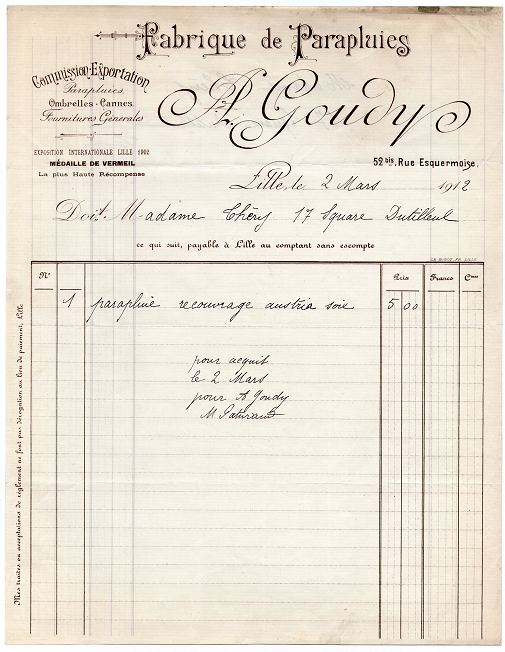 Fabrique de Parapluies
Commission-Exportation
Parapluies
Ombrelles-Cannes
Fournitures Générales
A. Goudy
EXPOSITION INTERNATIONALE LILLE 1902
MÉDAILLE DE VERMEIL
La plus Haute Récompense
52 bis, Rue Esquermoise.
Lille, le 2 Mars 1912
Doit Madame Théry 17 Square Dutilleul
ce qui suit, payable à Lille au comptant sans escompte
No Prix Francs Cmes
1 parapluie recouvrage austria soie 5 00
pour acquit
le 2 Mars
pour A Goudy
M
Mes traites ou acceptations de règlement ne font pas dérogation au lieu de paiement, Lille